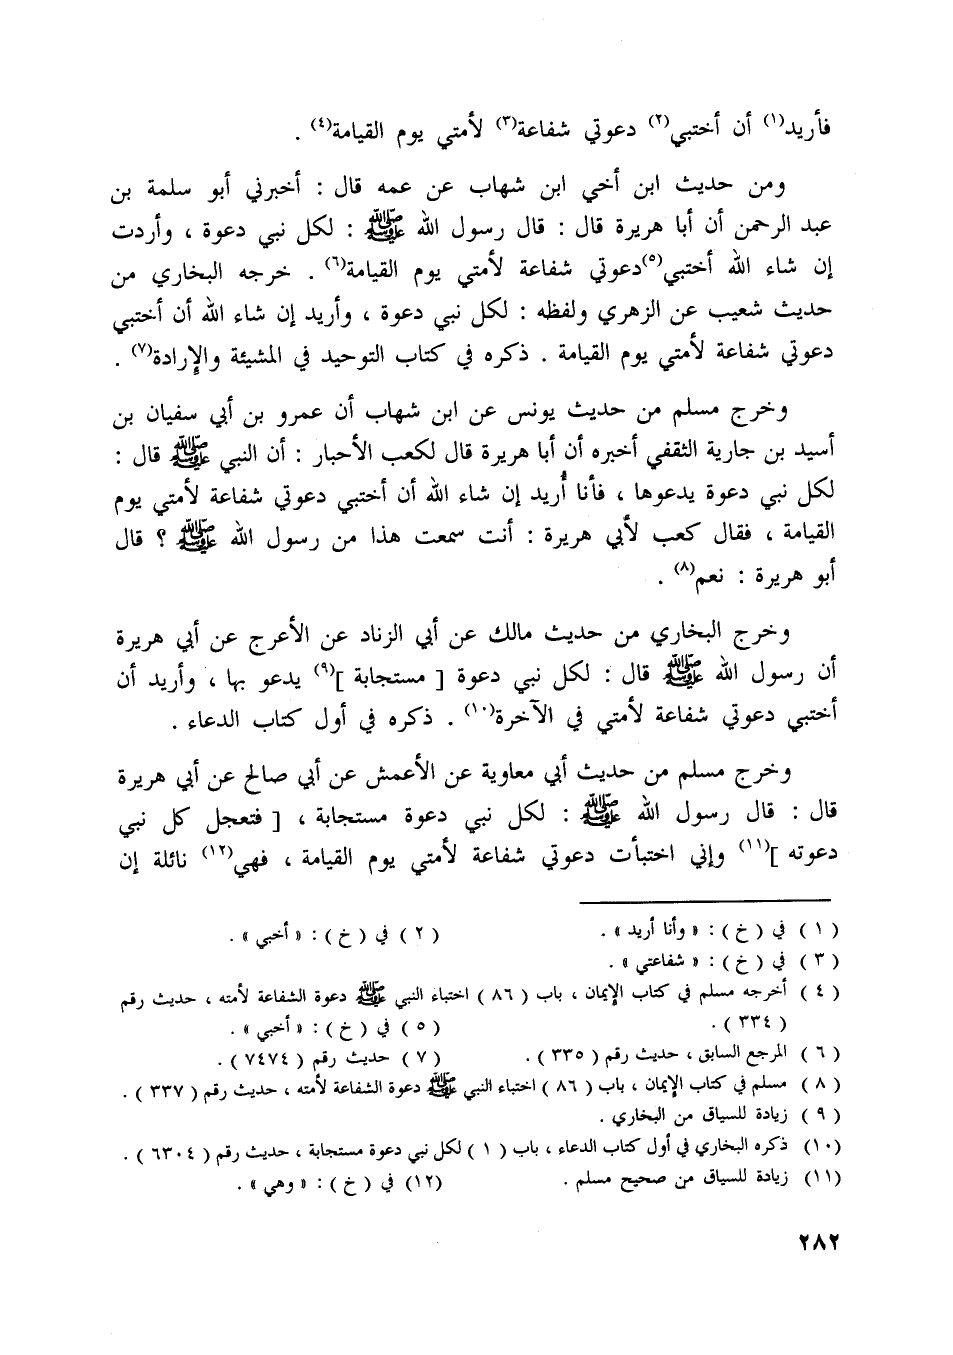 فأريد(١) أن أختبي(٢) دعوتي شفاعة(٣) لأمتي يوم القيامة(٤) .
ومن حديث ابن أخي ابن شهاب عن عمه قال : أخبرني أبو سلمة بن
عبد الرحمن أن أبا هريرة قال : قال رسول الله ﷺ : لكل نبي دعوة ، وأردت
إن شاء الله أختبي(٥)دعوتي شفاعة لأمتي يوم القيامة(٦) . خرجه البخاري من
حديث شعيب عن الزهري ولفظه : لكل نبي دعوة ، وأريد إن شاء الله أن أختبي
دعوتي شفاعة لأمتي يوم القيامة . ذكره في كتاب التوحيد في المشيئة والإرادة(٧) .
وخرج مسلم من حديث يونس عن ابن شهاب أن عمرو بن أبي سفيان بن
أسيد بن جارية الثقفي أخبره أن أبا هريرة قال لكعب الأحبار : أن النبي ﷺ قال :
لكل نبي دعوة يدعوها ، فأنا أُريد إن شاء الله أن أختبي دعوتي شفاعة لأمتي يوم
القيامة ، فقال كعب لأبي هريرة : أنت سمعت هذا من رسول الله ﷺ ؟ قال
أبو هريرة : نعم(٨) .
وخرج البخاري من حديث مالك عن أبي الزناد عن الأعرج عن أبي هريرة
أن رسول الله ﷺ قال : لكل نبي دعوة [ مستجابة ](٩) يدعو بها ، وأريد أن
أختبي دعوتي شفاعة لأمتي في الآخرة(١٠) . ذكره في أول كتاب الدعاء .
وخرج مسلم من حديث أبي معاوية عن الأعمش عن أبي صالح عن أبي هريرة
قال : قال رسول الله ﷺ : لكل نبي دعوة مستجابة ، [ فتعجل كل نبي
دعوته ](١١) وإني اختبأت دعوتي شفاعة لأمتي يوم القيامة ، فهي(١٢) نائلة إن
( ١ ) في ( خ ) : « وأنا أريد » . ( ٢ ) في ( خ ) : « أخبي » .
( ٣ ) في ( خ ) : « شفاعتي » .
( ٤ ) أخرجه مسلم في كتاب الإيمان ، باب ( ٨٦ ) اختباء النبي ﷺ دعوة الشفاعة لأمته ، حديث رقم
( ٣٣٤ ) . ( ٥ ) في ( خ ) : « أخبي » .
( ٦ ) المرجع السابق ، حديث رقم ( ٣٣٥ ) . ( ٧ ) حديث رقم ( ٧٤٧٤ ) .
( ٨ ) مسلم في كتاب الإيمان ، باب ( ٨٦ ) اختباء النبي ﷺ دعوة الشفاعة لأمته ، حديث رقم ( ٣٣٧ ) .
( ٩ ) زيادة للسياق من البخاري .
(١٠) ذكره البخاري في أول كتاب الدعاء ، باب ( ١ ) لكل نبي دعوة مستجابة ، حديث رقم ( ٦٣٠٤ ) .
(١١) زيادة للسياق من صحيح مسلم . (١٢) في ( خ ) : « وهي » .
٢٨٢